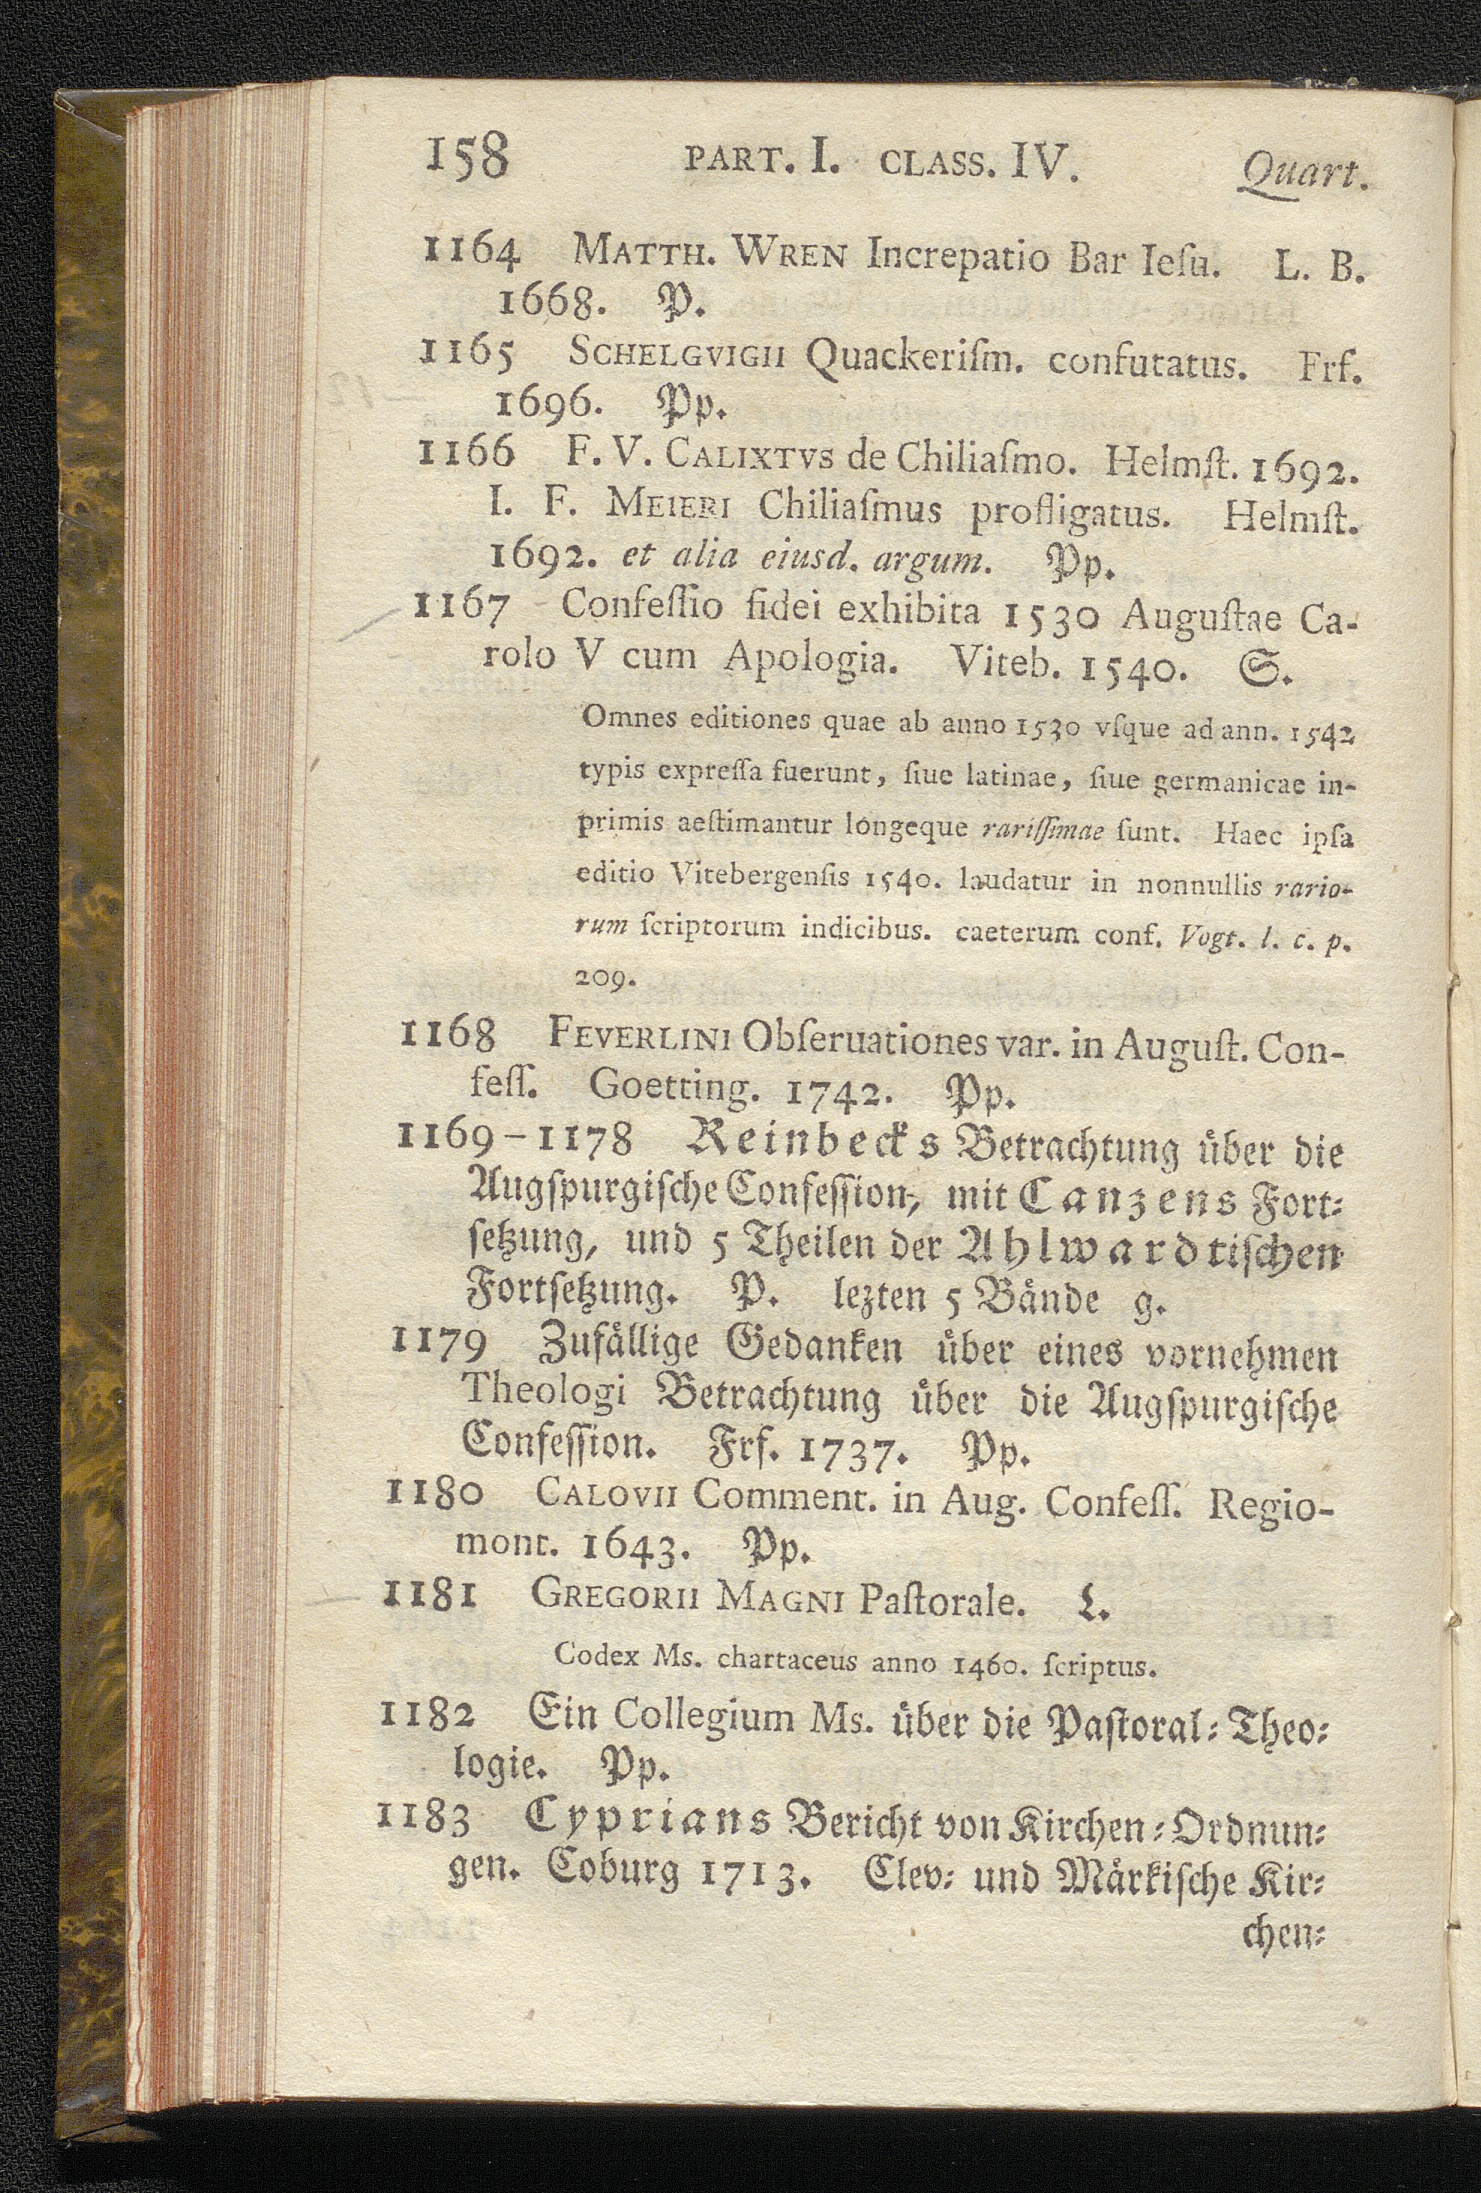 158 PART. I. CLASS. IV. Quart.
1164 MATTH. WREN Increpatio Bar Ieſu. L. B.
1668. P.
1165 SCHELGVIGII Quackeriſm. confutatus. Frf.
1696. Pp.
1166 F. V. CALIXTVS de Chiliaſmo. Helmſt. 1692.
I. F. MEIERI Chiliaſmus profligatus. Helmſt.
1692. et alia eiusd. argum. Pp.
1167 Confeſſio fidei exhibita 1530 Auguſtae Ca-
rolo V cum Apologia. Viteb. 1540. S.
Omnes editiones quae ab anno 1530 vſque ad ann. 1542
typis expreſſa fuerunt, ſiue latinae, ſiue germanicae in-
primis aeſtimantur longeque rariſſimae ſunt. Haec ipſa
editio Vitebergenſis 1540. laudatur in nonnullis rario-
rum ſcriptorum indicibus. caeterum conf. Vogt. l. c. p.
209.
1168 FEVERLINI Obſeruationes var. in Auguſt. Con-
feſſ. Goetting. 1742. Pp.
1169-1178 Reinbecks Betrachtung über die
Augſpurgiſche Confeſſion, mit Canzens Fort-
ſetzung, und 5 Theilen der Ahlwardtiſchen
Fortſetzung. P. lezten 5 Bände g.
1179 Zufällige Gedanken über eines vornehmen
Theologi Betrachtung über die Augſpurgiſche
Confeſſion. Frf. 1737. Pp.
1180 CALOVII Comment. in Aug. Confeſſ. Regio-
mont. 1643. Pp.
1181 GREGORII MAGNI Paſtorale. L.
Codex Ms. chartaceus anno 1460. ſcriptus.
1182 Ein Collegium Ms. über die Paſtoral-Theo-
logie. Pp.
1183 Cyprians Bericht von Kirchen-Ordnun-
gen. Coburg 1713. Clev- und Märkiſche Kir-
chen-